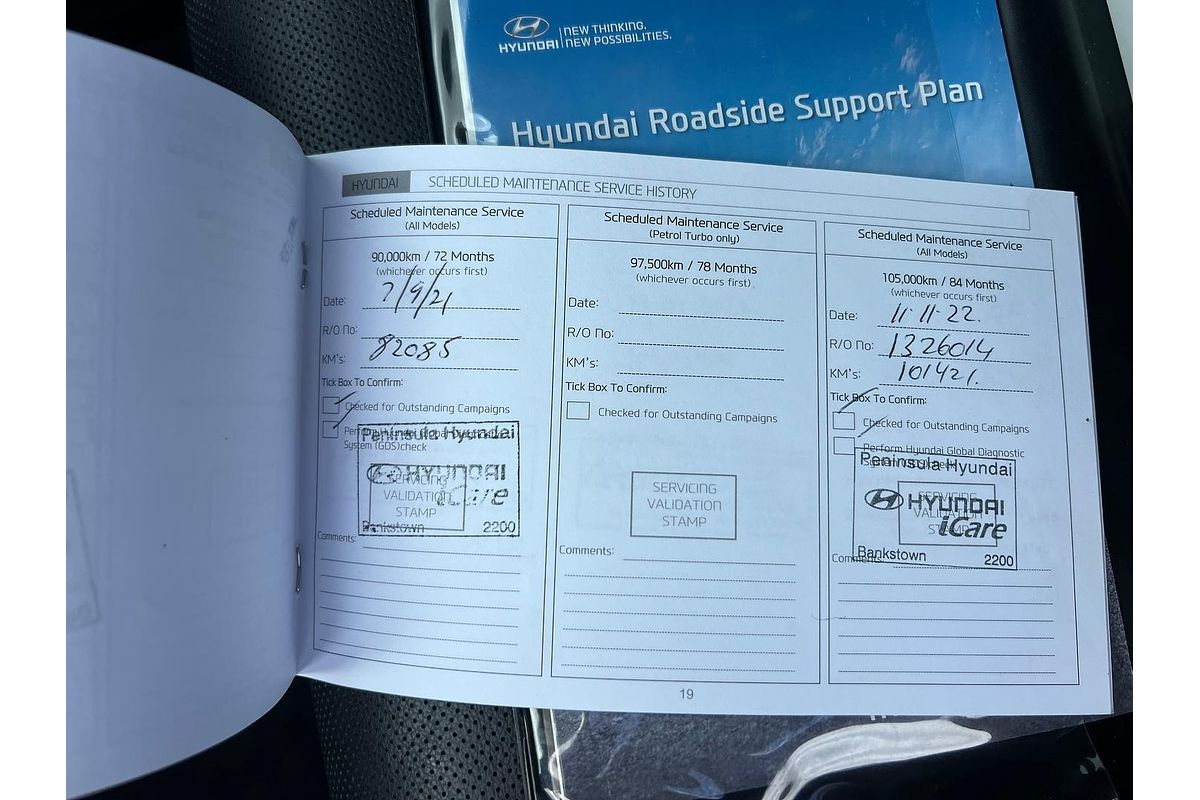 HYUNDAI
NEW THINKING.
NEW POSSIBILITIES.
Hyundai Roadside Support Plan
HYUNDAI SCHEDULED MAINTENANCE SERVICE HISTORY
Scheduled Maintenance Service
(All Models)
90,000km / 72 Months
(whichever occurs first)
Date: 7/9/21
R/O No:
KM's: 82085
Tick Box To Confirm:
Checked for Outstanding Campaigns
Perform Hyundai Global
System (GDS) check
Peninsula Hyundai
HYUNDAI
iCare
SERVICING
VALIDATION
STAMP
Bankstown 2200
Comments:
Scheduled Maintenance Service
(Petrol Turbo only)
97,500km / 78 Months
(whichever occurs first)
Date:
R/O No:
KM's:
Tick Box To Confirm:
Checked for Outstanding Campaigns
SERVICING
VALIDATION
STAMP
Comments:
Scheduled Maintenance Service
(All Models)
105,000km / 84 Months
(whichever occurs first)
Date: 11-11-22.
R/O No: 1326014
KM's: 101421.
Tick Box To Confirm:
Checked for Outstanding Campaigns
Perform Hyundai Global Diagnostic
Peninsula Hyundai
HYUNDAI
iCare
SERVICING
VALIDATION
STAMP
Bankstown 2200
Comments:
19